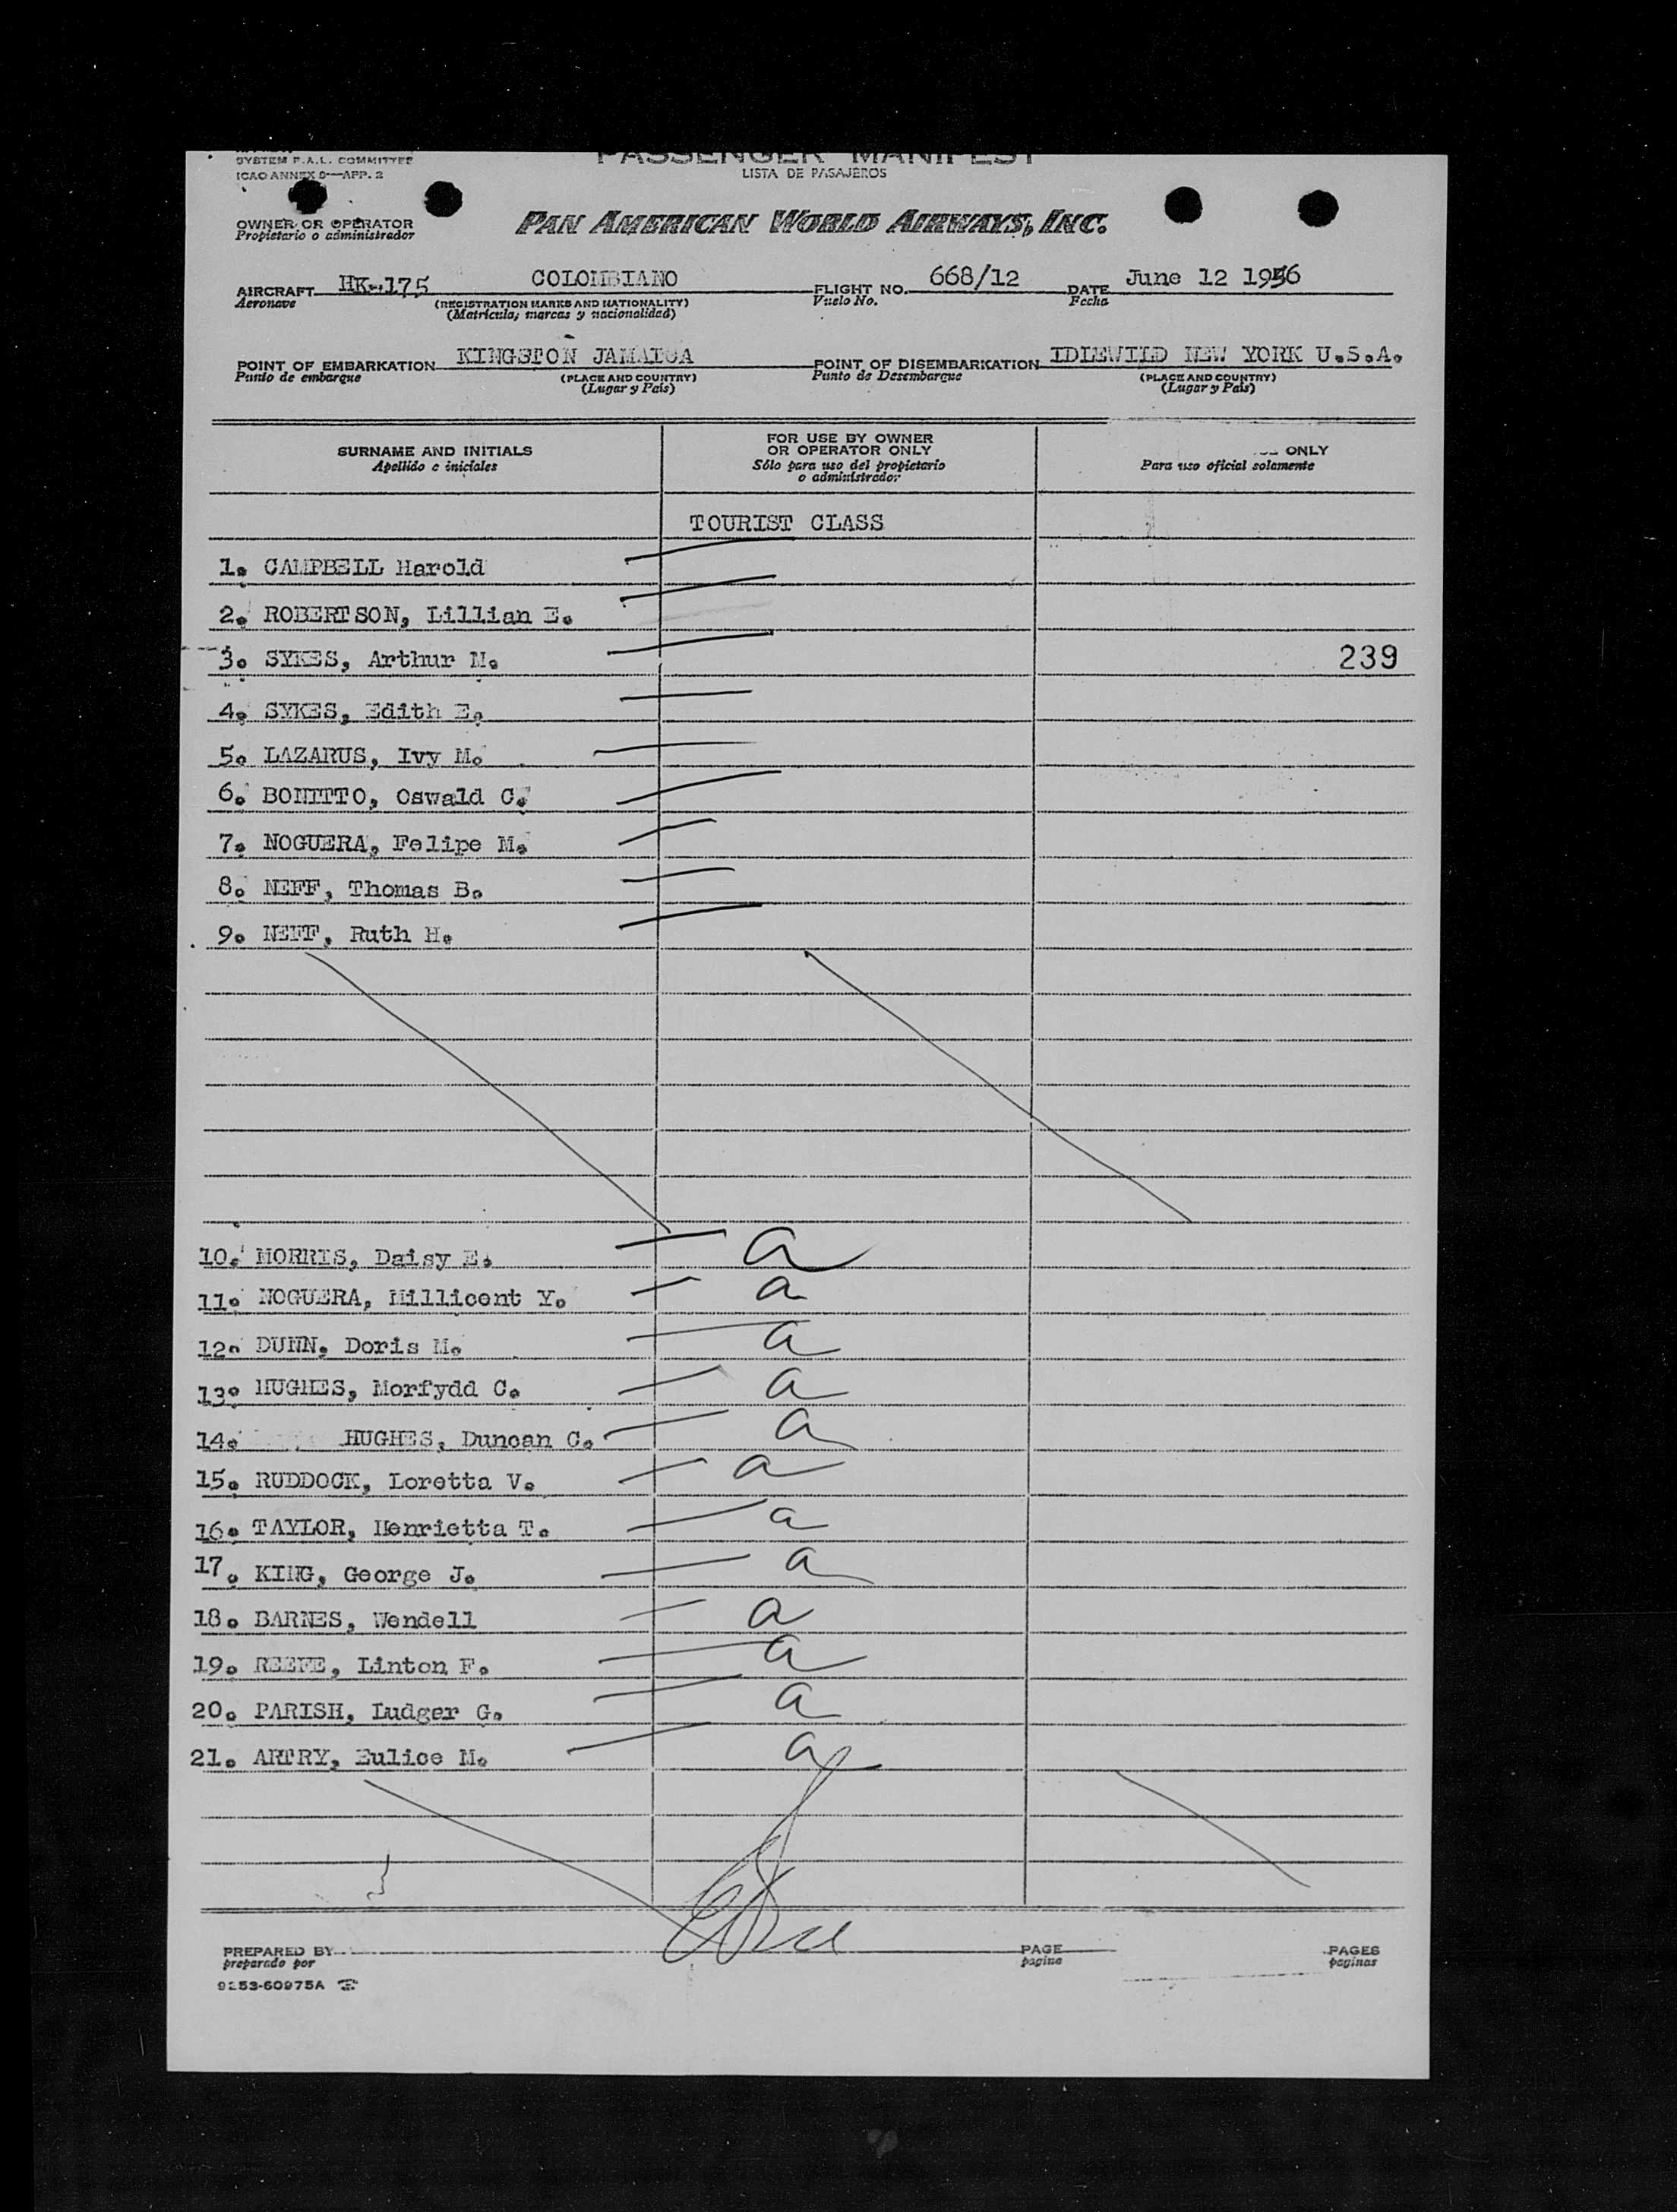 SYSTEM F.A.L. COMMITTEE
ICAO ANNEX 9—APP. 2
PASSENGER MANIFEST
LISTA DE PASAJEROS
OWNER OR OPERATOR
Propietario o administrador
PAN AMERICAN WORLD AIRWAYS, INC.
AIRCRAFT HK-175 COLOMBIANO FLIGHT NO. 668/12 DATE June 12 1956
Aeronave (REGISTRATION MARKS AND NATIONALITY) Vuelo No. Fecha
(Matrícula; marcas y nacionalidad)
POINT OF EMBARKATION KINGSTON JAMAICA POINT OF DISEMBARKATION IDLEWILD NEW YORK U.S.A.
Punto de embarque (PLACE AND COUNTRY) Punto de Desembarque (PLACE AND COUNTRY)
(Lugar y País) (Lugar y País)
SURNAME AND INITIALS
Apellido e iniciales
FOR USE BY OWNER
OR OPERATOR ONLY
Sólo para uso del propietario
o administrador
ONLY
Para uso oficial solamente
TOURIST CLASS
1. CAMPBELL Harold
2. ROBERTSON, Lillian E.
3. SYKES, Arthur N. 239
4. SYKES, Edith E.
5. LAZARUS, Ivy M.
6. BONITTO, Oswald C.
7. NOGUERA, Felipe M.
8. NEFF, Thomas B.
9. NEFF, Ruth H.
10. MORRIS, Daisy E. a
11. NOGUERA, Millicent Y. a
12. DUNN, Doris M. a
13. HUGHES, Morfydd C. a
14. HUGHES, Duncan C. a
15. RUDDOCK, Loretta V. a
16. TAYLOR, Henrietta T. a
17. KING, George J. a
18. BARNES, Wendell a
19. REEFE, Linton F. a
20. PARISH, Ludger G. a
21. ARTRY, Eulice M. a
PREPARED BY PAGE PAGES
preparado por página páginas
9253-60975A